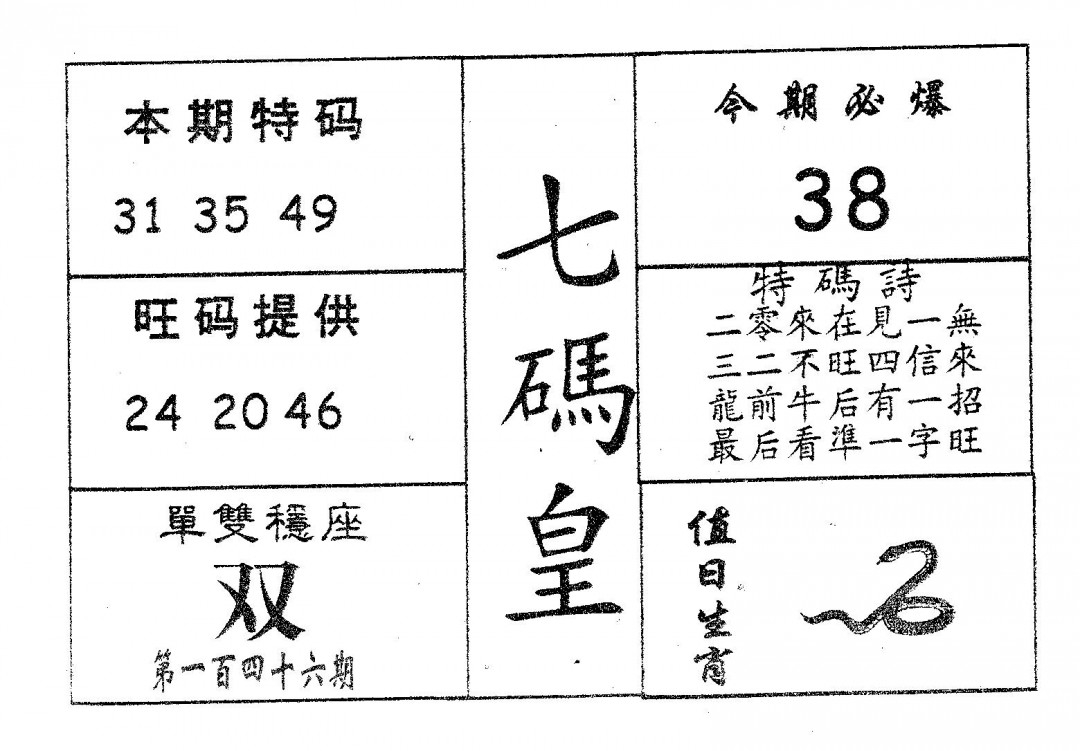 本期特码
31 35 49
旺码提供
24 20 46
單雙穩座
双
第一百四十六期
七碼皇
今期必爆
38
特碼詩
二零來在見一無
三二不旺四信來
龍前牛后有一招
最后看準一字旺
值日生肖